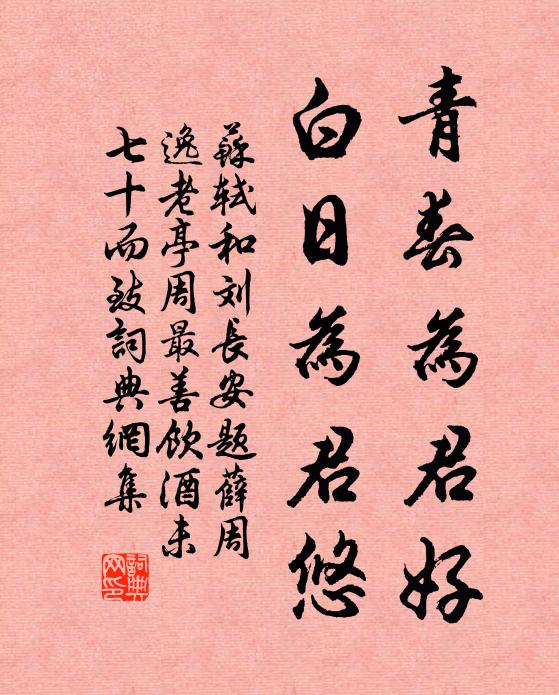 青春為君好
白日為君悠
蘇軾和刘長安題薛周
逸老亭周最善飲酒未
七十而致詞典網集
詞典網印